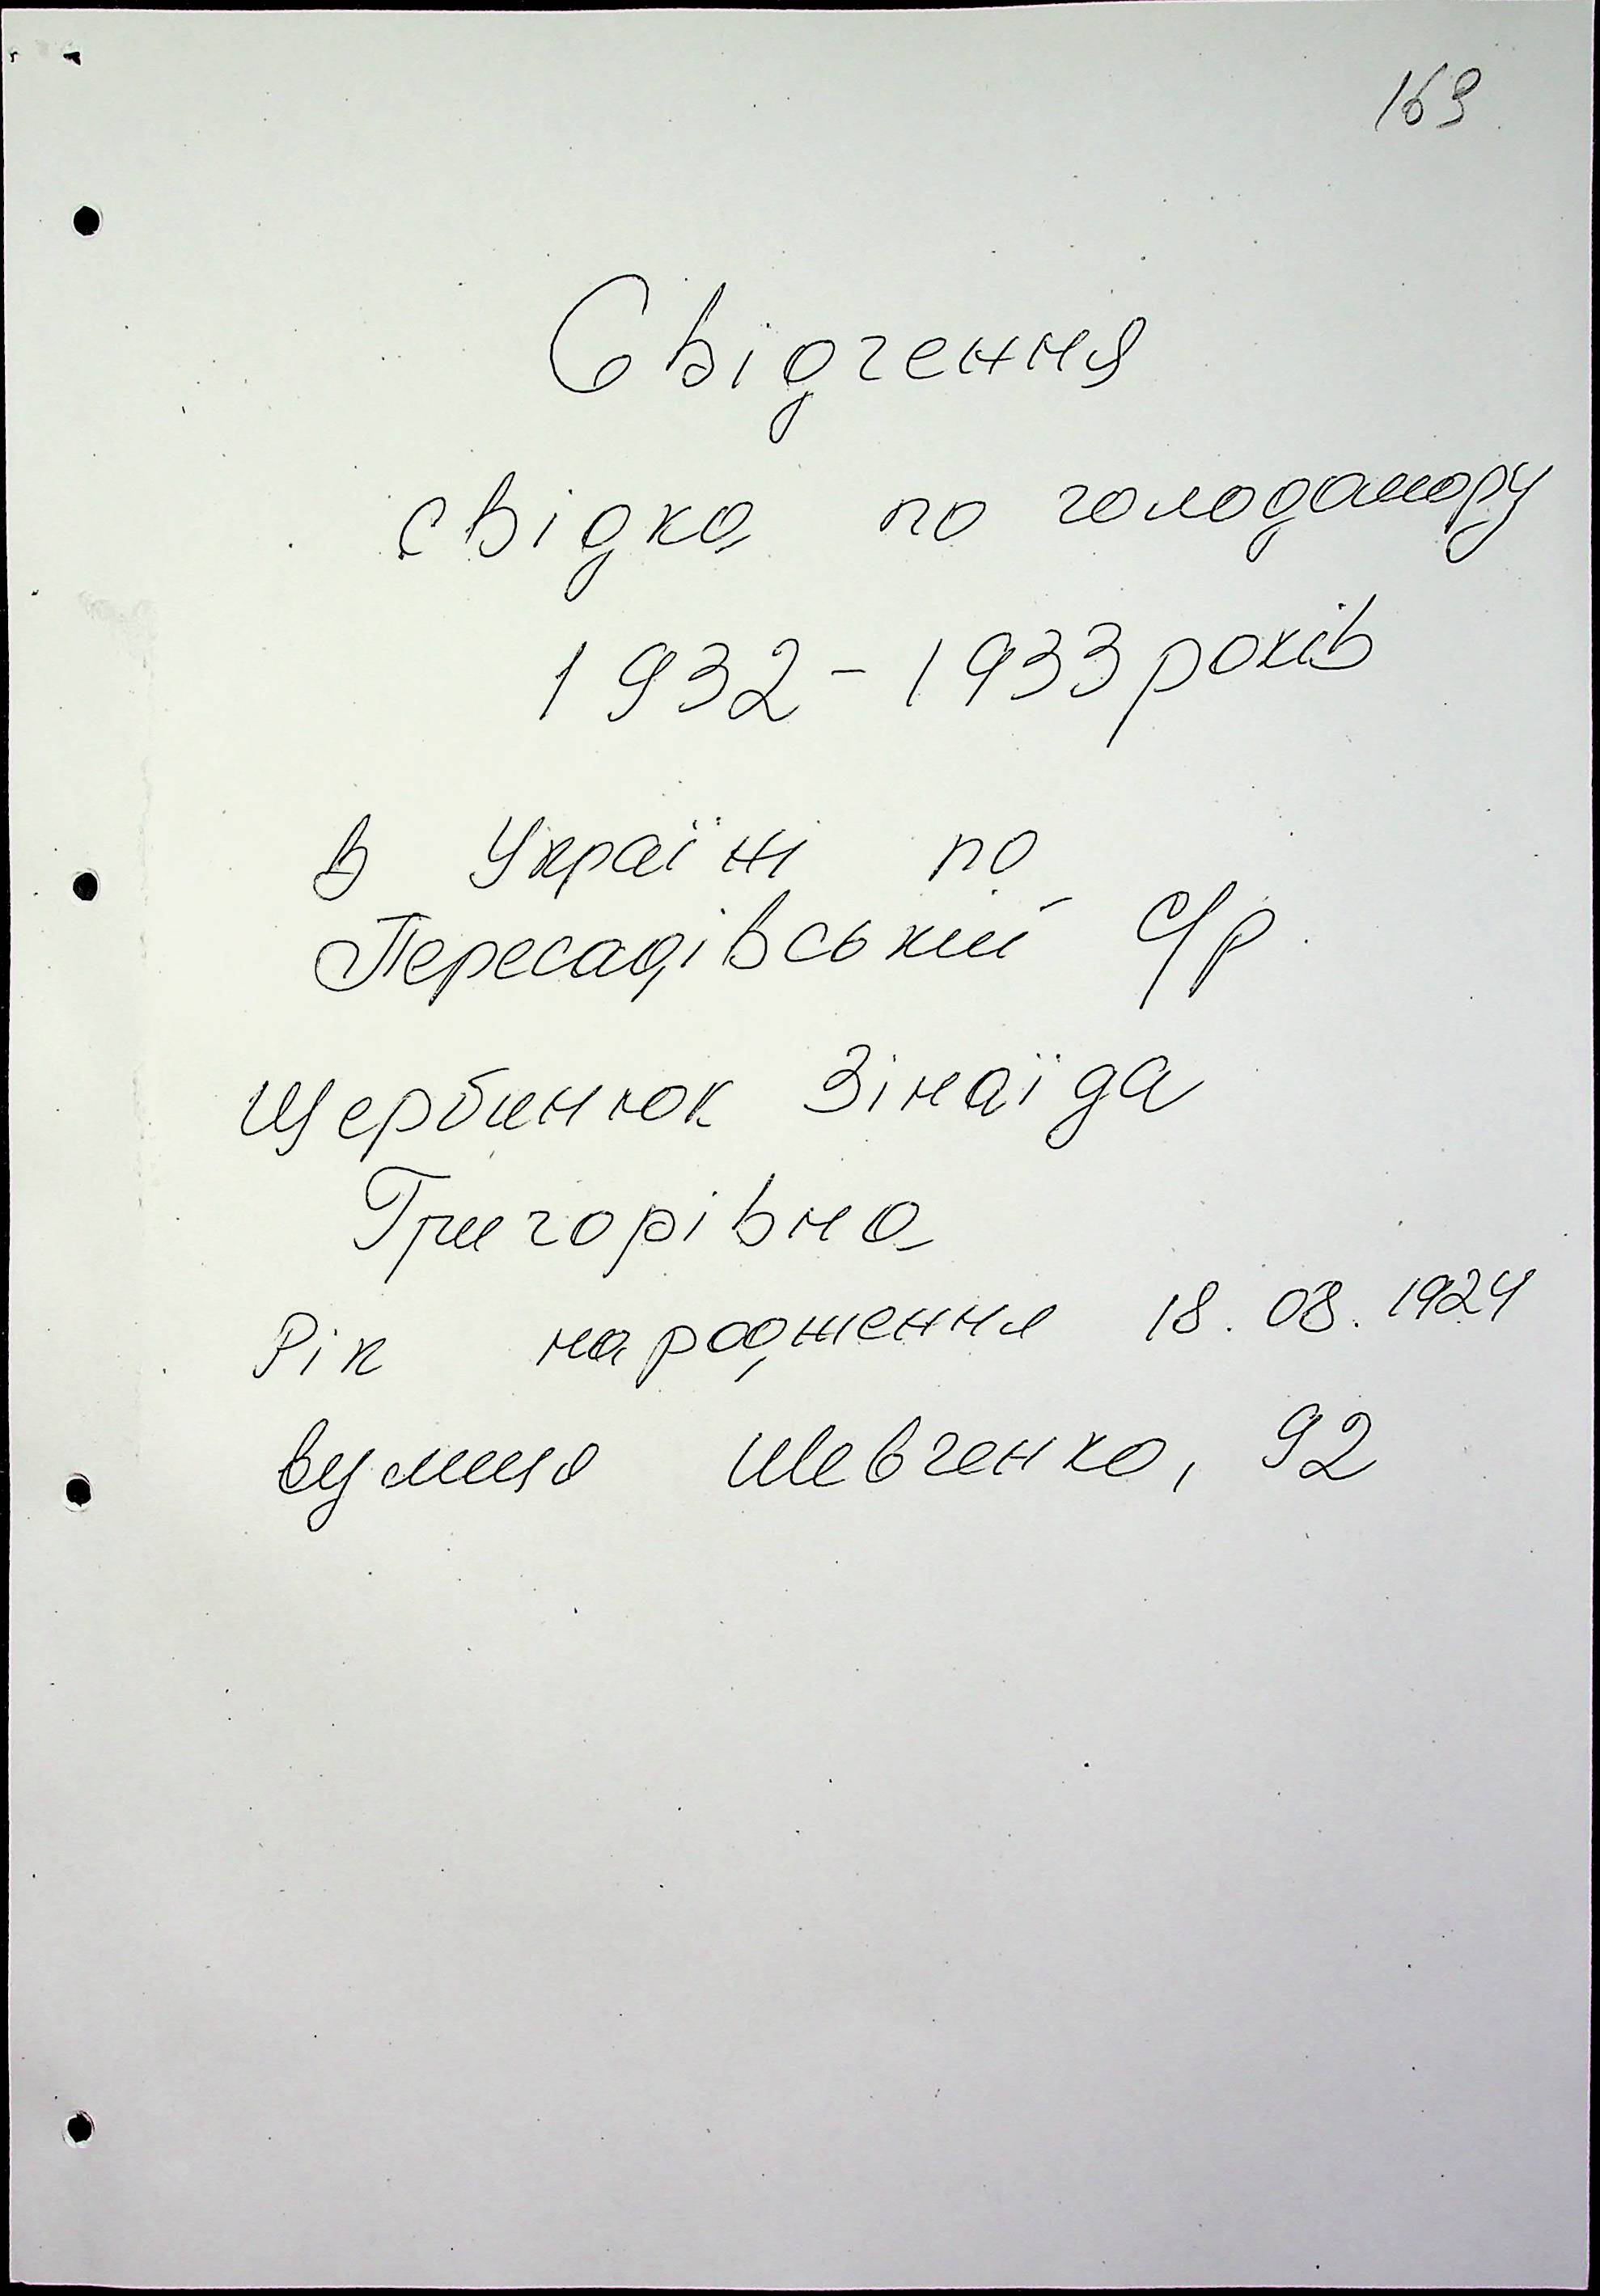 169
Свідчення
свідка по голодамору
1932-1933 років
в Україні по
Пересадівській с/р.
Щербинюк Зінаїда
Григорівна
Рік народження 18.08.1924
вулиця Шевченко, 92